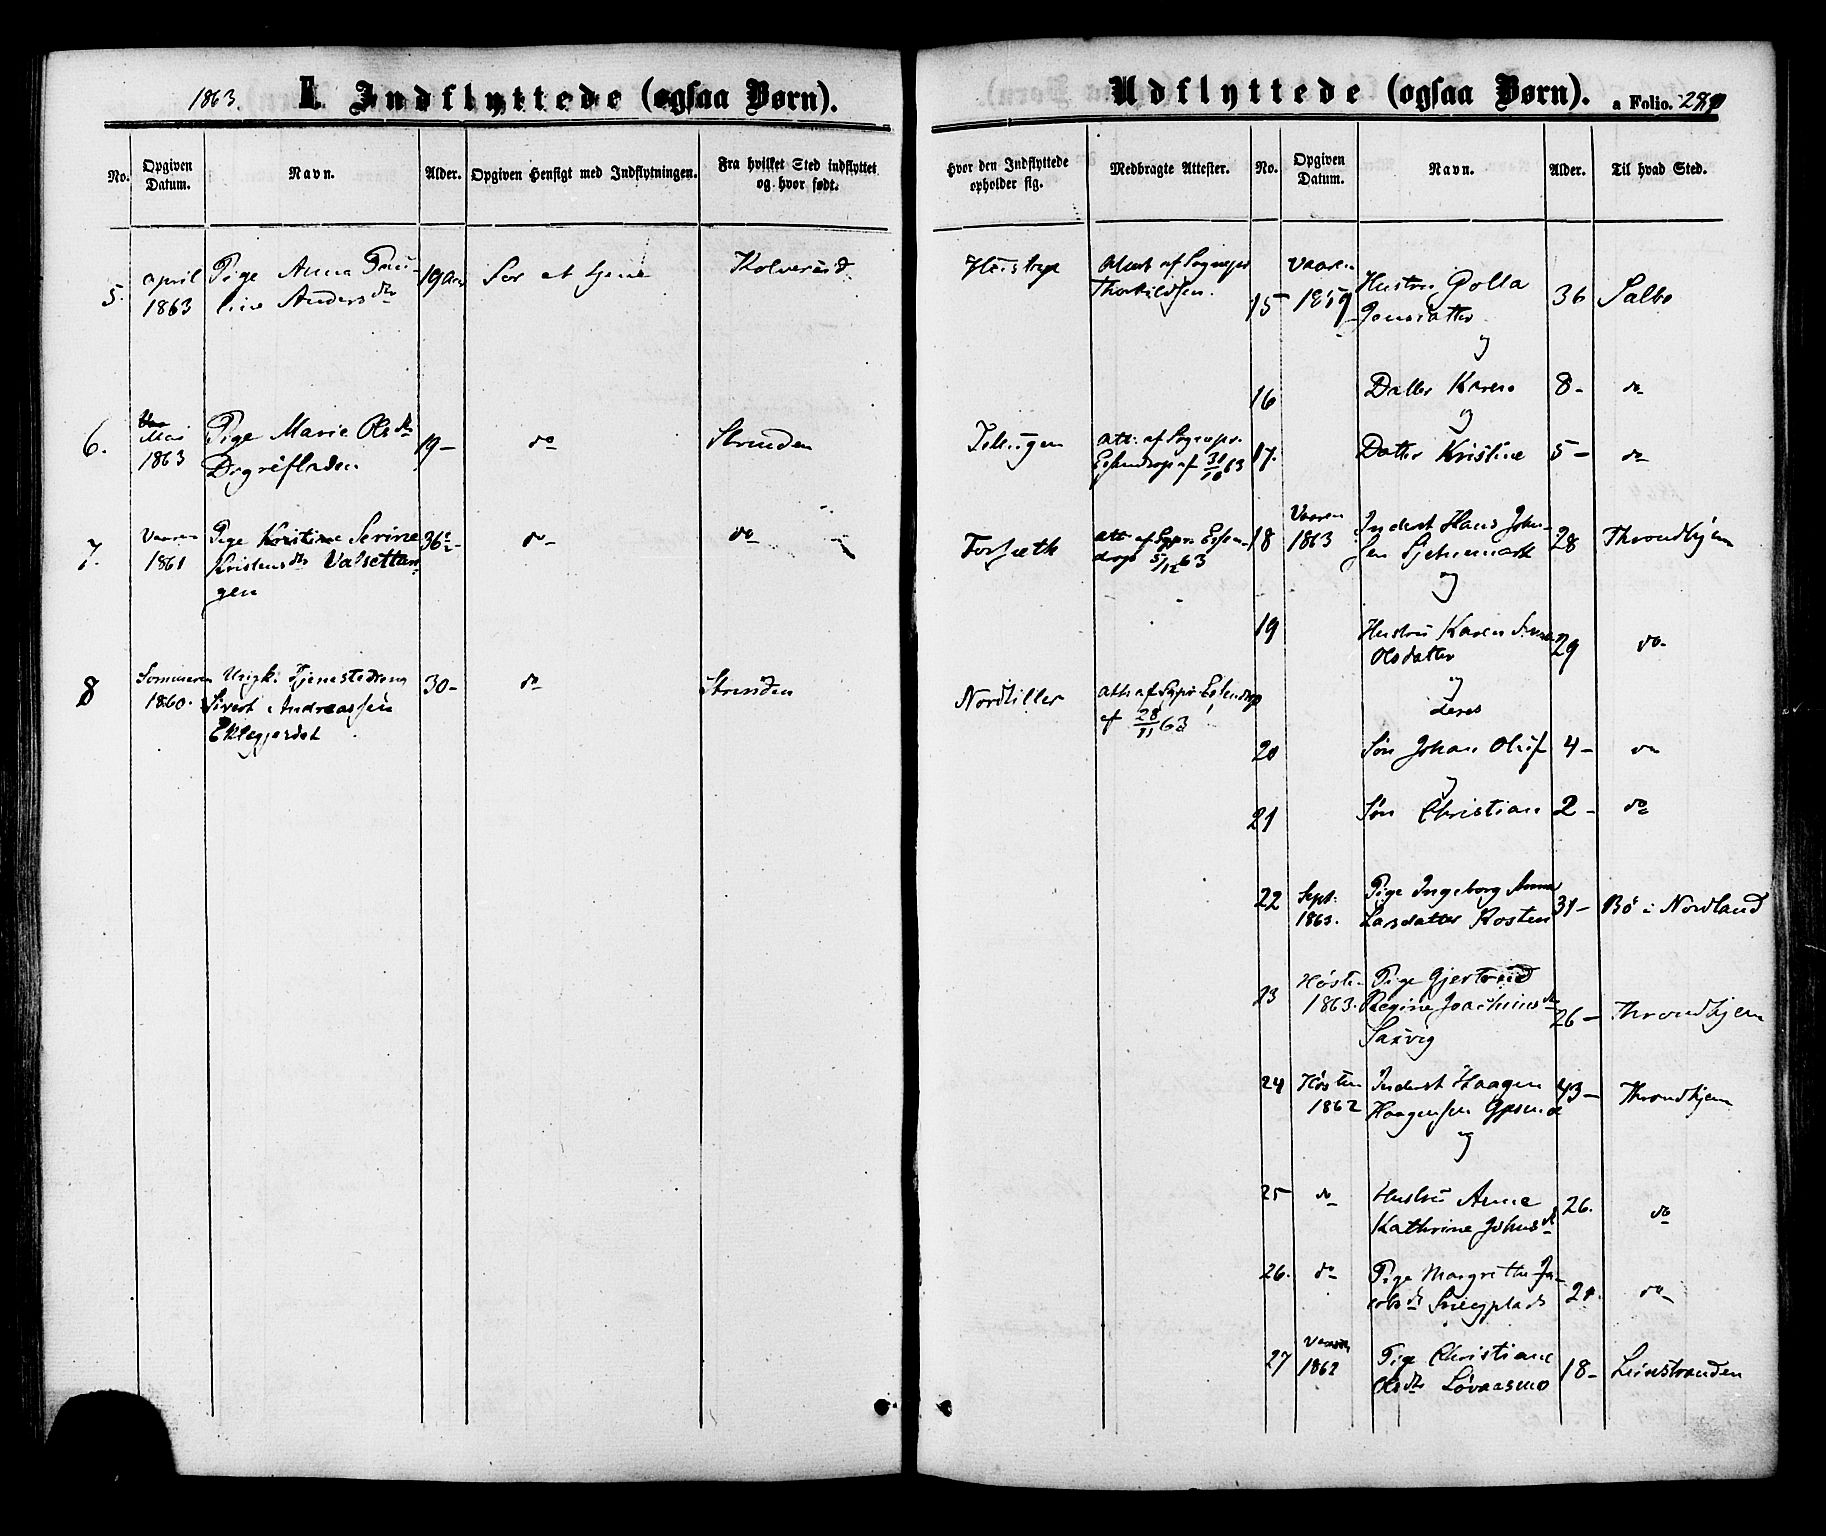 1863. I. Indflyttede (ogsaa Børn).
No. Opgiven Datum. Navn. Alder. Opgiven Hensigt med Indflytningen. Fra hvilket Sted indflyttet og hvor født.
5. April 1863 Pige Anna Pau-
line Andersdtr 19 Aar For at tjene Kolvereid
6. Mai 1863 Pige Marie Olsdtr 19 – do Strinden
7. Vaaren 1861 Pige Kristine Serine 36½ – do do
Kristensdtr Valsettan-
gen
8 Sommeren 1860. Ungk. Tjenestedreng 30 – do Strinden
Sivert Andreassen
Eklegjerdet
Udflyttede (ogsaa Børn). a Folio.
Hvor den Indflyttede opholder sig. Medbragte Attester. No. Opgiven Datum. Navn. Alder. Til hvad Sted.
Attest af Sognepr
Thorkildsen.
Att. af Sognepr.
Essendrop af 31/10 63
Forsæth Att. af Sgpr. Essen-
drop 5/12 63
Nordtiller Att. af Sgpr. Essendrop
af 28/11 63
15 Vaaren 1859 Hustru Golla
Jonsdatter 36 Salbo
og
16 Datter Karen 8 – do
og
17. Datter Kristine 5 – do
18 Vaaren 1863 Inderst Hans John-
sen 28 Throndhjem
og
19 Hustru Karen
Olsdatter 29 do
og
deres
20 Søn Johan Oluf 4 – do
og
21 Søn Christian 2 – do
22 Sept. 1863. Pige Ingeborg Anna
Larsdatter Rosten 31 – Bø i Nordland
23 Høsten 1863. Pige Gjertrud
Regine Joachimsdtr 26 – Throndhjem
Saxvig
24 Høsten 1862 Inderst Haagen 43 – Throndhjem
Haagensen
og
25 do Hustru Anne
Kathrine Johnsdtr 26. do
26. do Pige Margrethe Ja-
cobsdtr do
27 Vaaren 1862 Pige Christiane
Olsdtr Løvaasmo 18 – Leinstranden